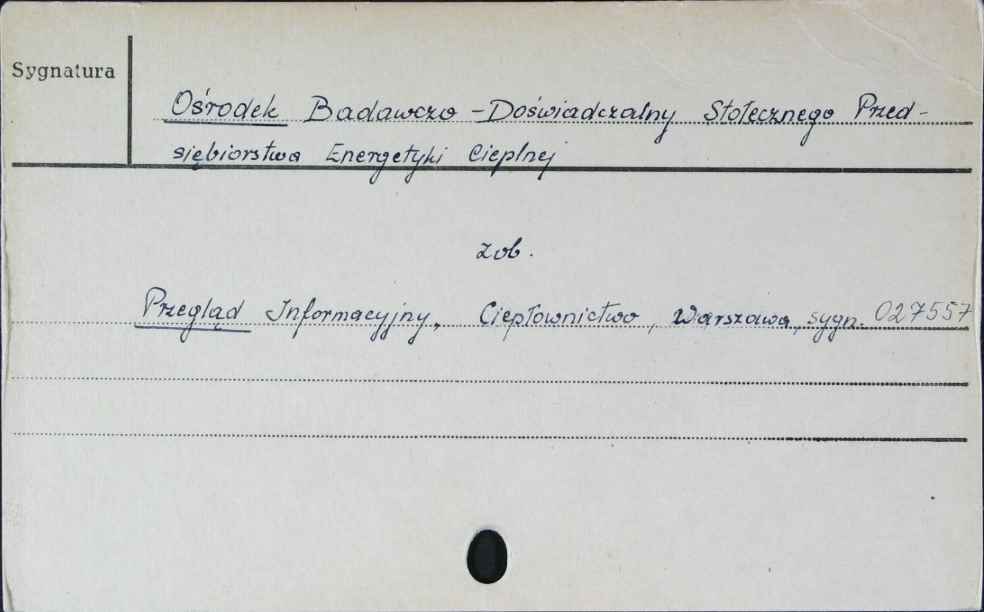 Sygnatura
Ośrodek Badawczo - Doświadczalny Stołecznego Przed-
siębiorstwa Energetyki Cieplnej
zob.
Przegląd Informacyjny, Ciepłownictwo, Warszawa, sygn. 027557